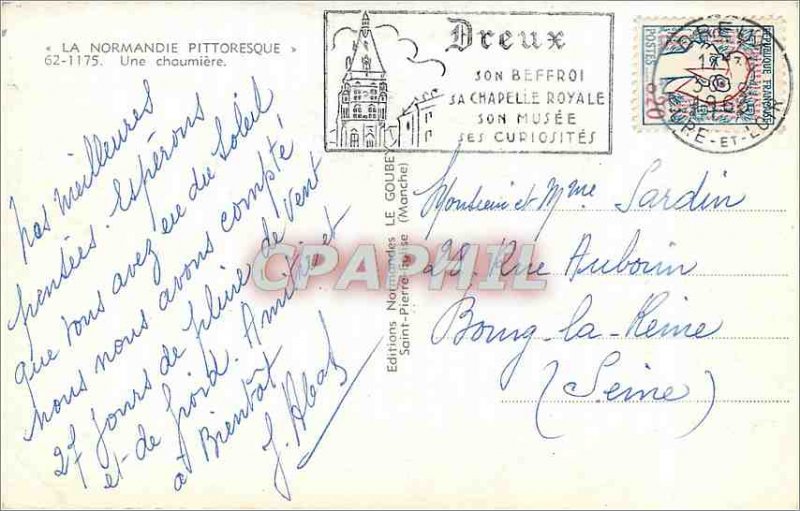 « LA NORMANDIE PITTORESQUE »
62-1175. Une chaumière.
Nos meilleures
pensées. Espérons
que vous avez eu du soleil
nous nous avons compté
27 jours de pluie de vent
et de froid. Amitié et
à Bientôt
Editions Normandes LE GOUBEY
Saint-Pierre-Eglise (Manche)
Dreux
SON BEFFROI
SA CHAPELLE ROYALE
SON MUSÉE
SES CURIOSITÉS
REPUBLIQUE FRANÇAISE
POSTES
0,20
DREUX
EURE-ET-LOIR
Monsieur et Mme Sardin
22, Rue Aubouin
Bourg-la-Reine
(Seine)
CPAPHIL